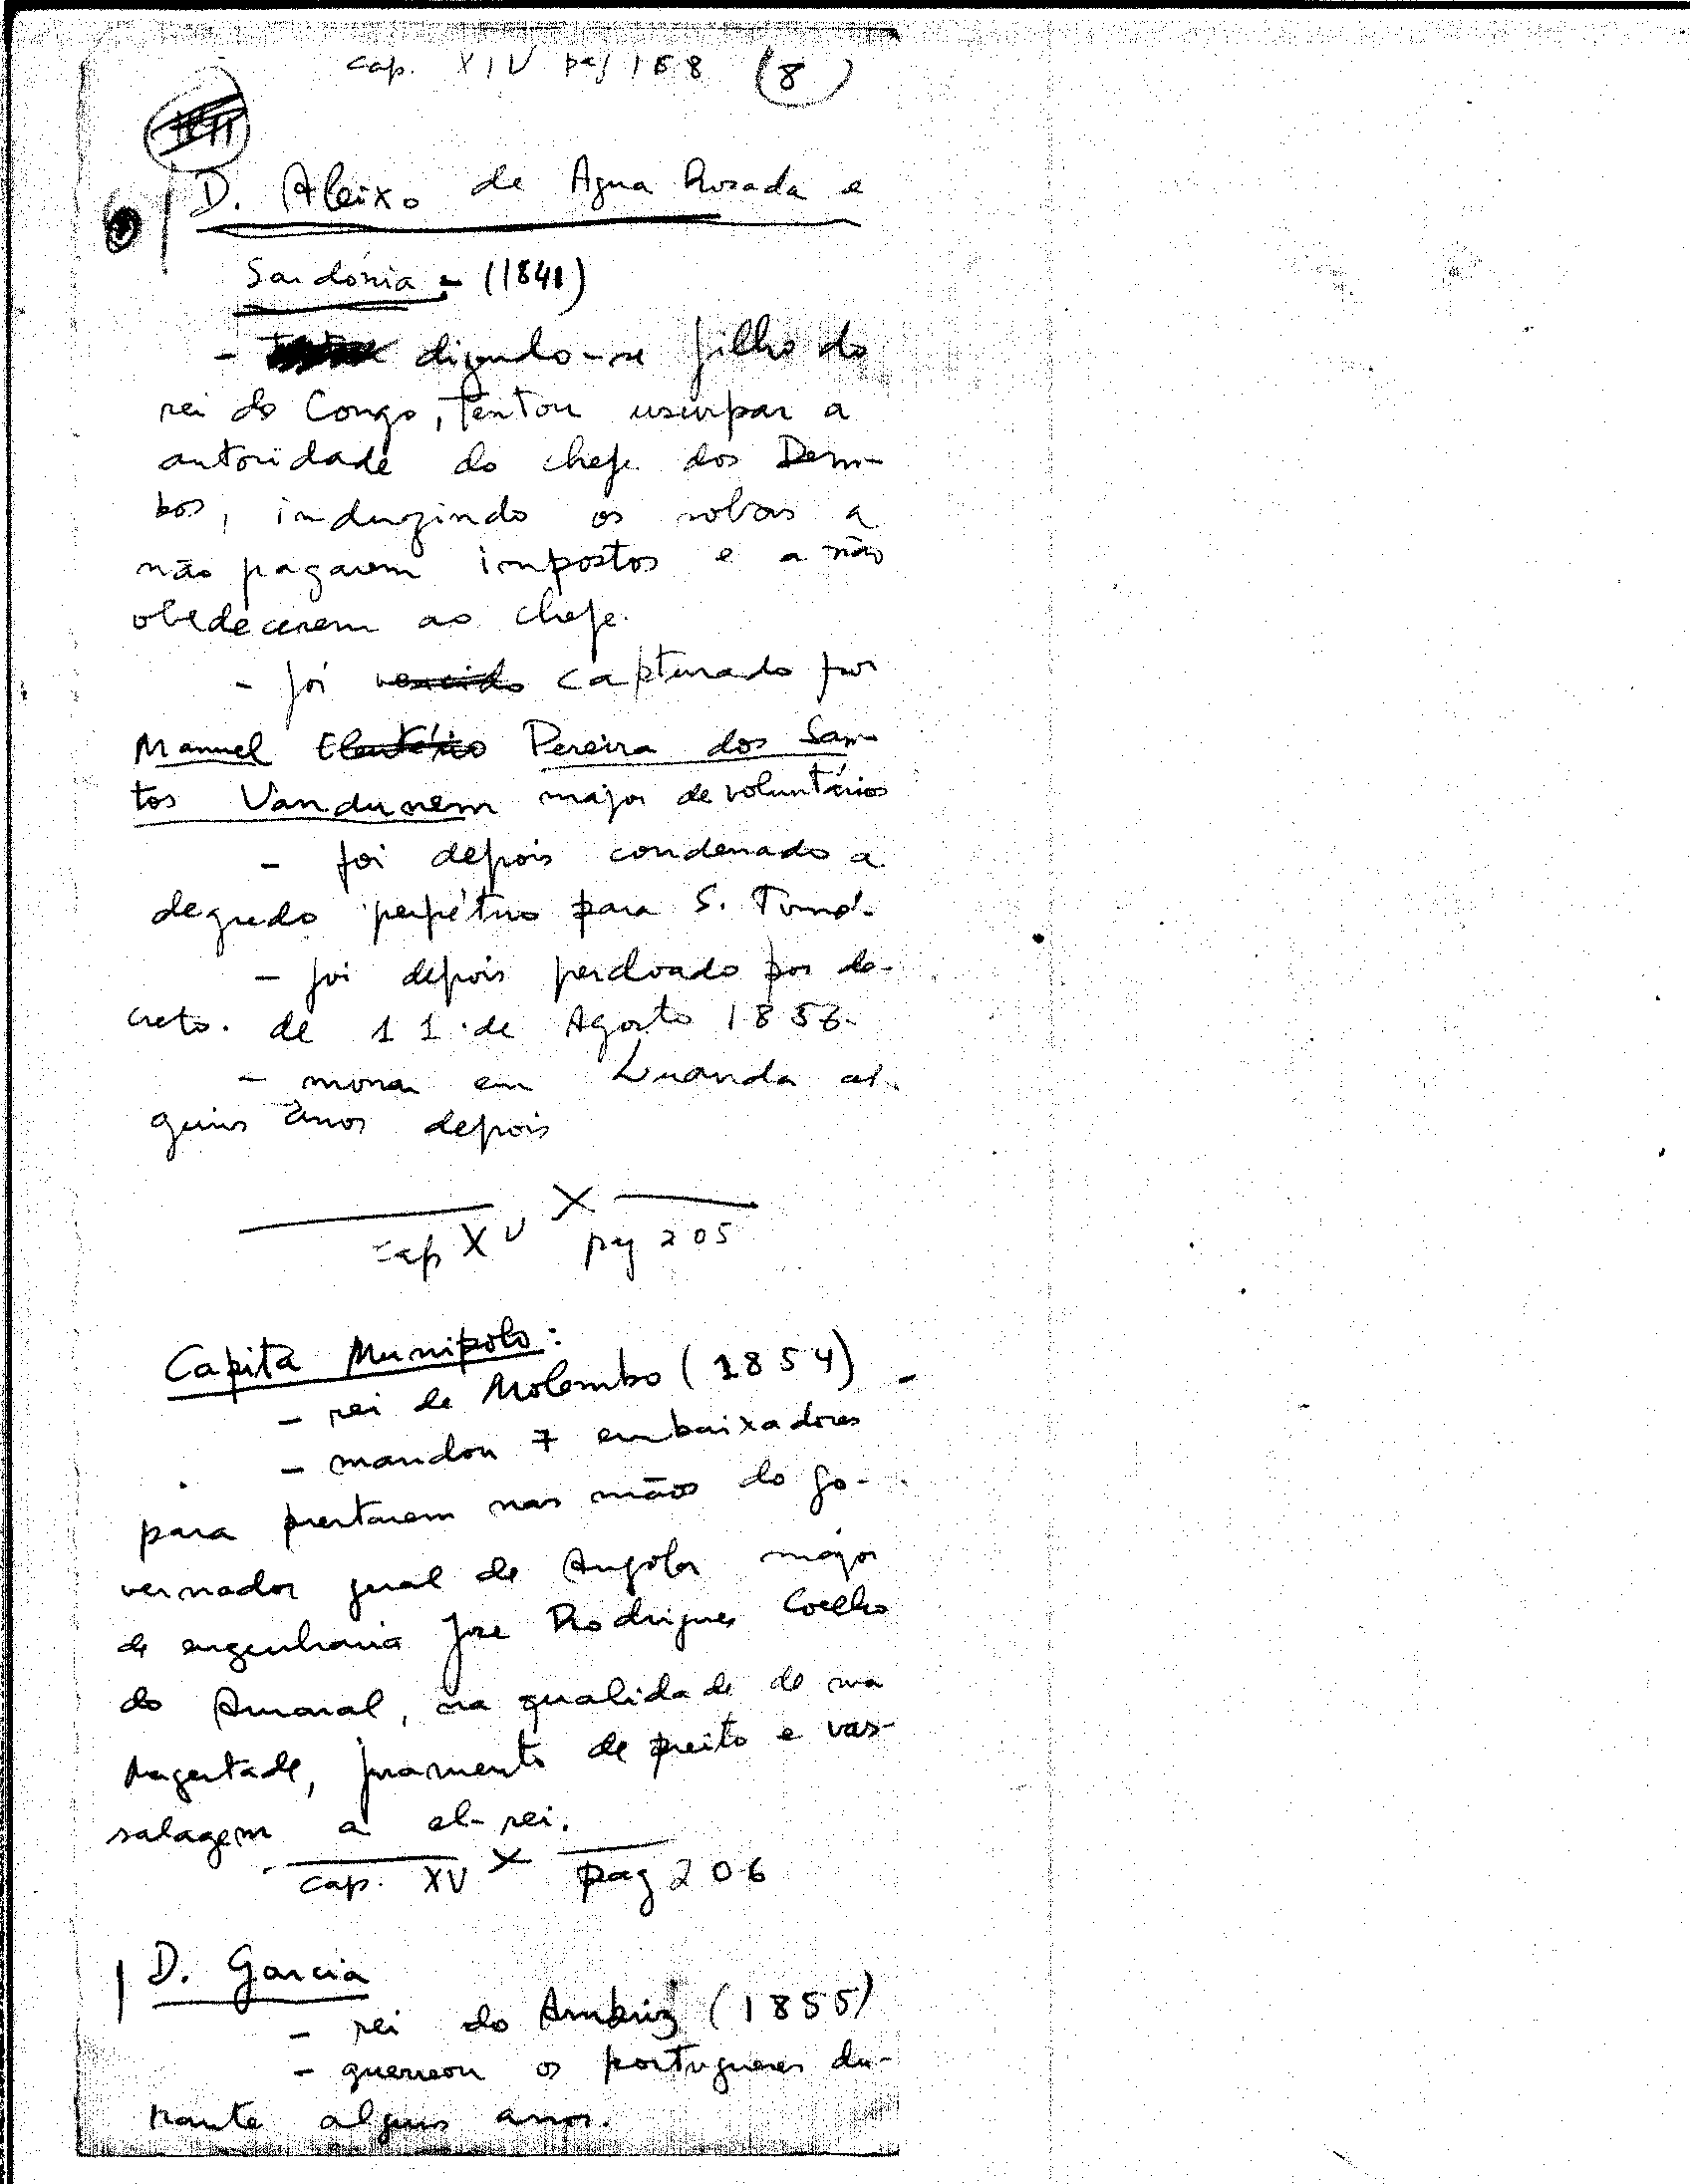 cap. XIV pag 168 (8)
D. Aleixo de Agua Rosada e
Sardónia - (1841)
- dizendo-se filho do
rei do Congo, tentou usurpar a
autoridade do chefe dos Dem-
bos, induzindo os sobas a
não pagarem impostos e a não
obedecerem ao chefe.
- foi vencido capturado por
Manuel Eleutério Pereira dos San-
tos Vandunem major de voluntários
- foi depois condenado a
degredo perpétuo para S. Tomé.
- foi depois perdoado por de-
creto. de 11 de Agosto 1856.
- morou em Luanda al-
guns anos depois
X
cap XV pag 205
Capita Munipolo:
- rei de Molembo (1854) -
- mandou 7 embaixadores
para prestarem nas mãos do go-
vernador geral de Angola major
de engenharia José Rodrigues Coelho
do Amaral, na qualidade de sua
Magestade, juramento de preito e vas-
salagem a el-rei.
X
cap. XV pag 206
D. Garcia
- rei do Ambriz (1855)
- guerreou os portugueses du-
rante alguns anos.